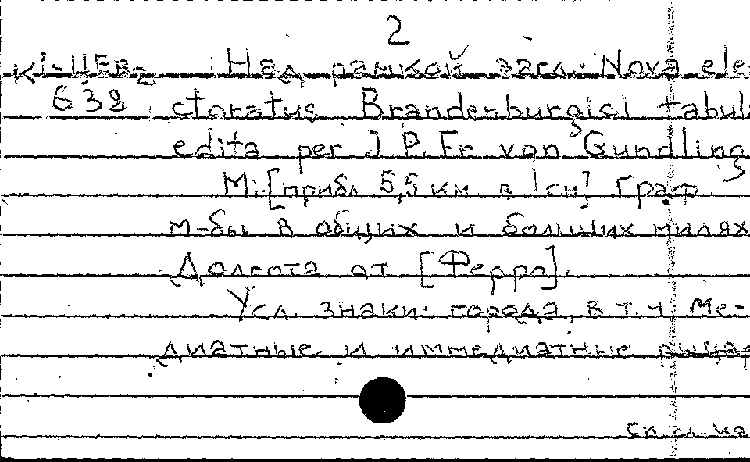 2
К1-ЦЕв-2 Над рамкой загл.: Nova ele
632 ctoratus Brandenburgici tabul
edita per J. P. Fr. von Gundling
М: [прибл 5,5 км в 1 см] Граф
м-бы в общих и больших милях
Долгота от [Ферро].
Усл. знаки: города, в т.ч. ме-
диатные и иммедиатные рыцар
См. сл. ка